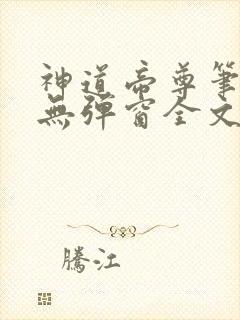 神道帝尊筆
無彈窗全文
騰江